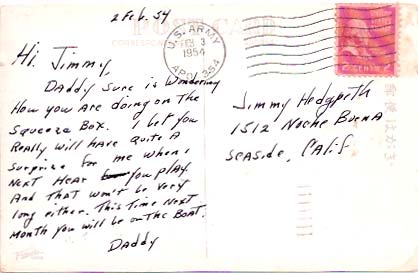 2 Feb. 54
POSTCARD
CORRESPONDENCE
Hi Jimmy,
Daddy sure is wondering
How you are doing on the
Squeeze Box. I bet you
Really will have quite a
surprise for me when I
next hear you play.
And that won't be very
long either. This time next
month you will be on the Boat.
Daddy
U.S. ARMY
FEB 3
1954
APO 354
Jimmy Hedgpeth
1512 Noche Buena
Seaside, Calif